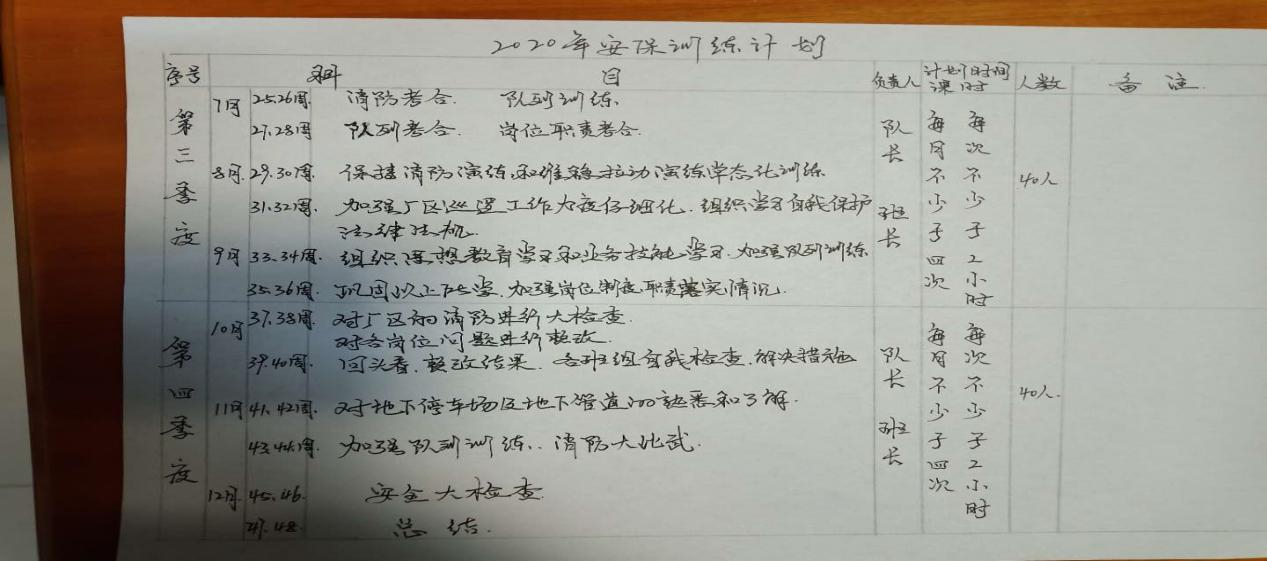 2020年安保训练计划
序号 科目 负责人 计划课时 时间 人数 备注
第三季度
7月 25.26周 消防考合. 队列训练.
27.28周 队列考合. 岗位职责考合.
8月. 29.30周. 保持消防演练,和维稳拉动演练常态化训练
31.32周. 加强厂区巡逻工作力度仔细化.组织学习自我保护
法律法规.
9月 33.34周. 组织思想教育学习和业务技能学习.加强队列训练
35.36周. 巩固以上所学.加强岗位制度职责落实情况.
队长 班长
每月不少于四次
每次不少于2小时
40人
第四季度
10月 37.38周. 对厂区的消防进行大检查.
对各岗位问题进行整改.
39.40周. 回头看.整改结果.各班组自我检查.解决措施
11月 41.42周. 对地下停车场及地下管道的熟悉和了解.
43.44.周. 加强队列训练..消防大比武.
12月. 45.46. 安全大检查.
47.48. 总结.
队长 班长
每月不少于四次
每次不少于2小时
40人.